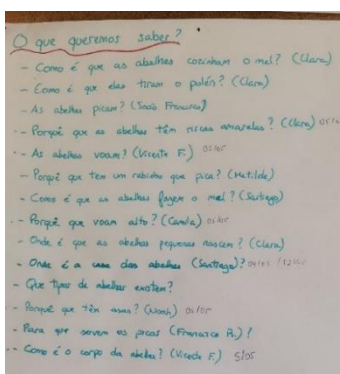 O que queremos saber?
- Como é que as abelhas cozinham o mel? (Clara)
- Como é que elas tiram o polén? (Clara)
- As abelhas picam? (João Francisco)
- Porquê que as abelhas têm riscas amarelas? (Clara)
- As abelhas voam? (Vicente F.) 05/05
- Porquê que tem um rabinho que pica? (Matilde)
- Como é que as abelhas fazem o mel? (Santiago)
- Porquê que voam alto? (Camila)
- Onde é que as abelhas pequenas nascem? (Clara)
- Onde é a casa das abelhas (Santiago)?
- Que tipos de abelhas existem?
- Porquê que têm asas? (Noah)
- Para que servem as picas (Francisco R.)?
- Como é o corpo da abelha? (Vicente F.) 5/05